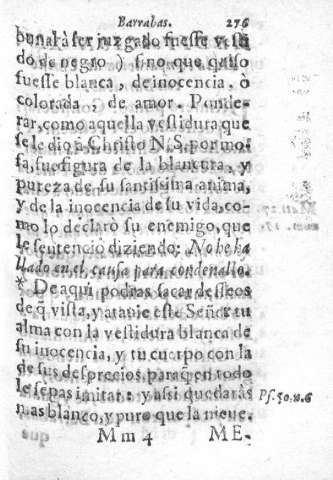 Barrabas. 276
bunal à ser juzgado fuesse vesti
do de negro) sino que quiso
fuesse blanca, de inocencia, ò
colorada, de amor. Ponde-
rar, como aquella vestidura que
se le diò à Christo N. S. por mo-
fa, fue figura de la blancura, y
pureza de su santissima anima,
y de la inocencia de su vida, co-
mo lo declarò su enemigo, que
le sentenciò diziendo: No he ha
llado en èl, causa para condenallo.
* De aqui podras sacar desseos
de q̃ vista, y atavie este Señor tu
alma con la vestidura blanca de
su inocencia, y tu cuerpo con la
de sus desprecios, paraq̃ en todo
le sepas imitar: y assi quedaràs
mas blanco, y puro que la nieue.
Ps. 50. n. 6
Mm 4 ME-